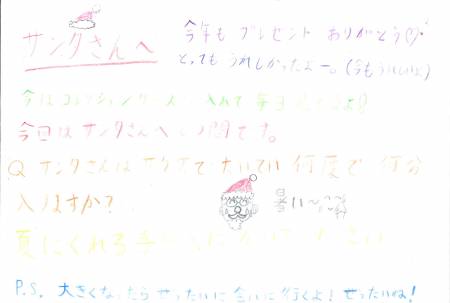 サンタさんへ
今年も プレゼント ありがとう♡
とっても うれしかったよー。(今もうれしいよ)
今はコレクションケースに入れて毎日
今回はサンタさんへ 問です。
Q サンタさんは サウナで たいてい 何度で 何分
入りますか?
暑い~
夏にくれる手
P.S. 大きくなったら ぜったいに 会いに行くよ! ぜったいね!